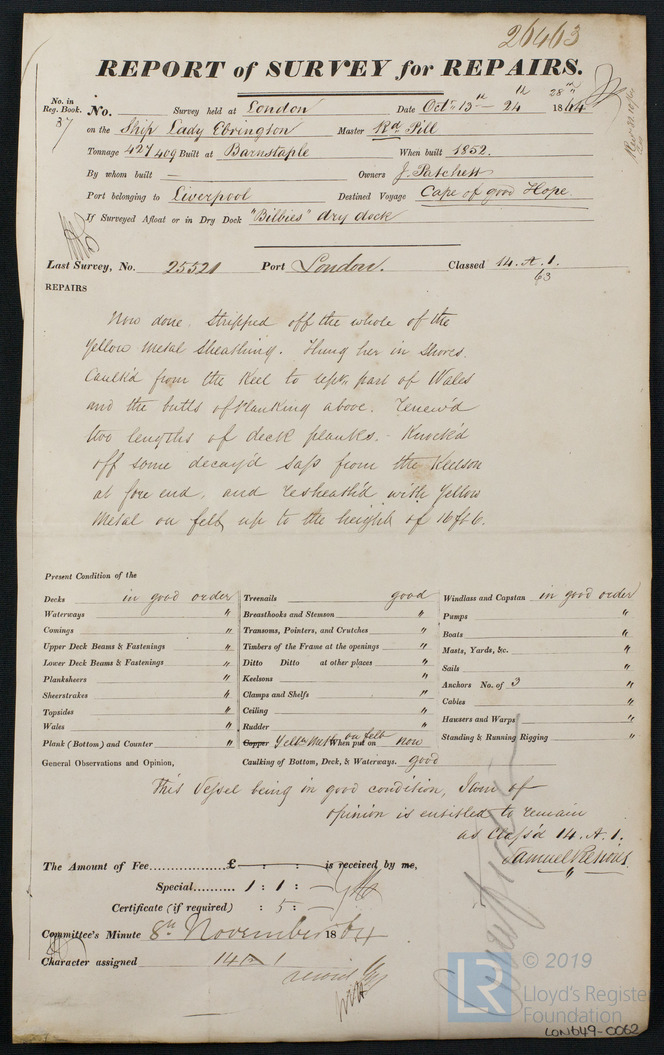 26463
REPORT of SURVEY for REPAIRS.
No. in Reg. Book. 37 No. Survey held at London Date Octr. 13th - 24th 28th 1864
on the Ship Lady Ebrington Master Rd. Pill
Tonnage 427 409 Built at Barnstaple When built 1852.
By whom built — Owners J. Patchett
Port belonging to Liverpool Destined Voyage Cape of good Hope
If Surveyed Afloat or in Dry Dock "Bilbies" dry dock
Last Survey, No. 25521 Port London. Classed 14. A. 1.
63
REPAIRS
Now done, Stripped off the whole of the
Yellow Metal Sheathing. Hung her in Shores.
Caulk'd from the Keel to uppr. part of Wales
and the butts of Planking above. Renew'd
two lengths of deck planks. Knock'd
off some decay'd Sap from the Keelson
at fore end, and resheath'd with Yellow
Metal on felt up to the height of 16 ft 6.
Present Condition of the
Decks in good order
Waterways "
Comings "
Upper Deck Beams & Fastenings "
Lower Deck Beams & Fastenings "
Planksheers "
Sheerstrakes "
Topsides "
Wales "
Plank (Bottom) and Counter "
Treenails good
Breasthooks and Stemson "
Transoms, Pointers, and Crutches "
Timbers of the Frame at the openings "
Ditto Ditto at other places "
Keelsons "
Clamps and Shelfs "
Ceiling "
Rudder "
Copper Yellw Metl on felt When put on now
Caulking of Bottom, Deck, & Waterways. good
Windlass and Capstan in good order
Pumps "
Boats "
Masts, Yards, &c. "
Sails "
Anchors No. of 3 "
Cables "
Hausers and Warps "
Standing & Running Rigging "
General Observations and Opinion,
This Vessel being in good condition, I am of
opinion is entitled to remain
as Class'd 14. A. 1.
Samuel
The Amount of Fee £ : : is received by me,
Special 1 : 1 : —
Certificate (if required) : 5 : —
Committee's Minute 8th November 1864
Character assigned 14 A 1
© 2019
LR
Lloyd's Register
Foundation
LON649-0062